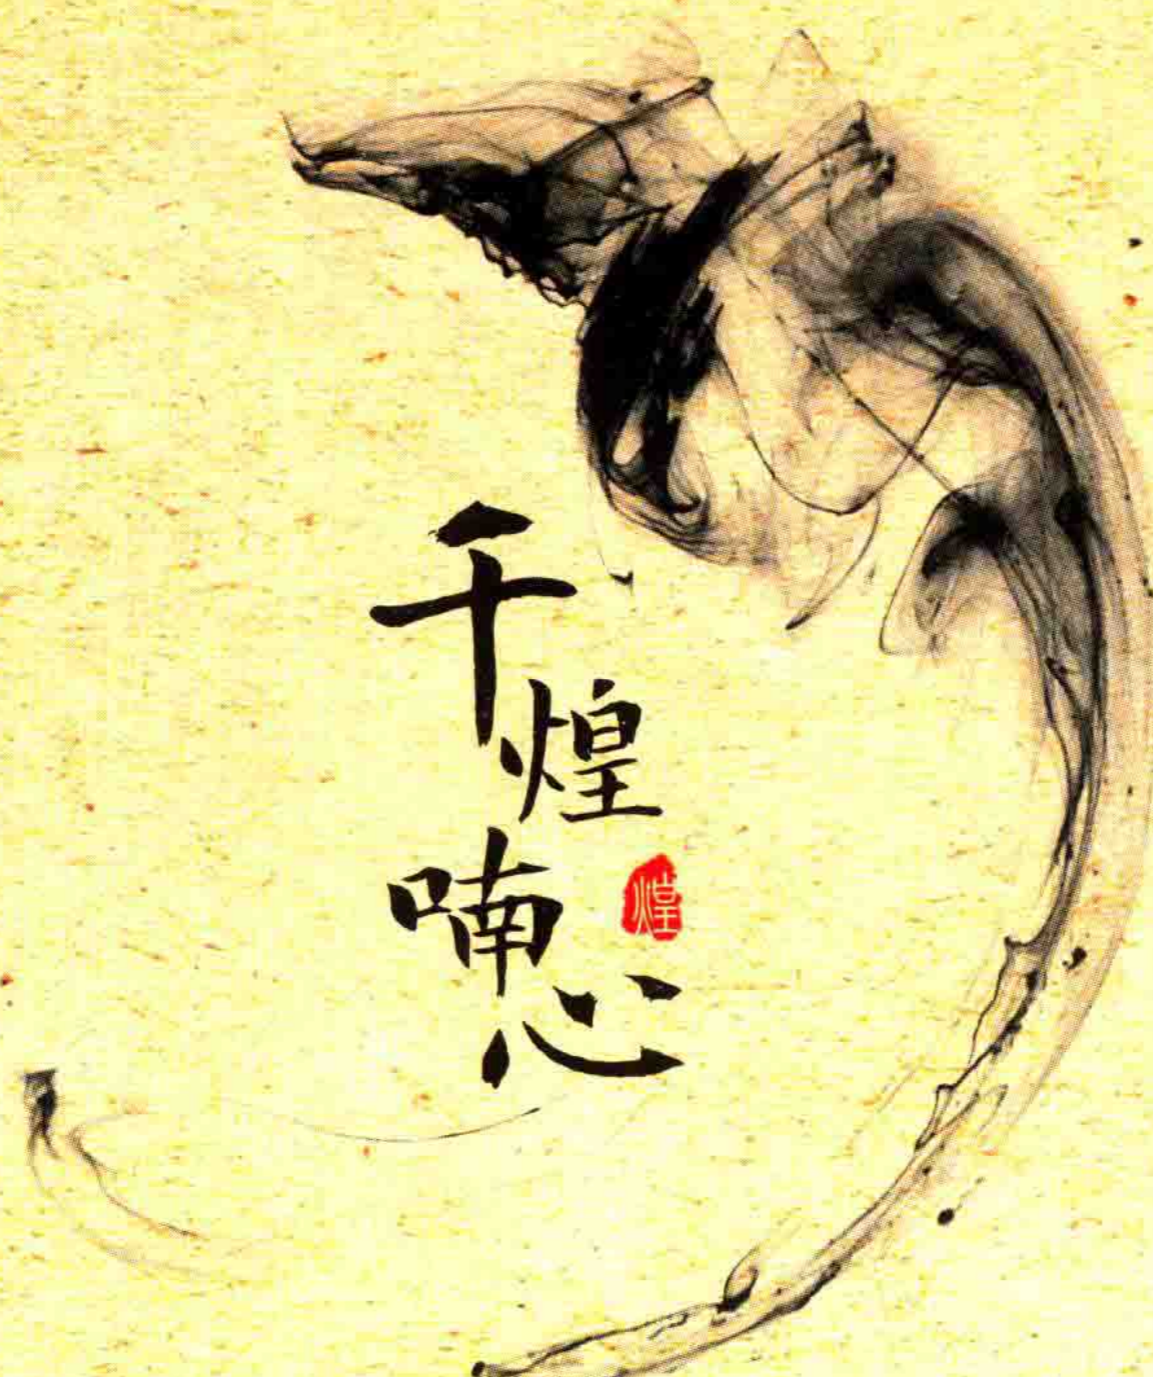 千
煌
喃
心
煌